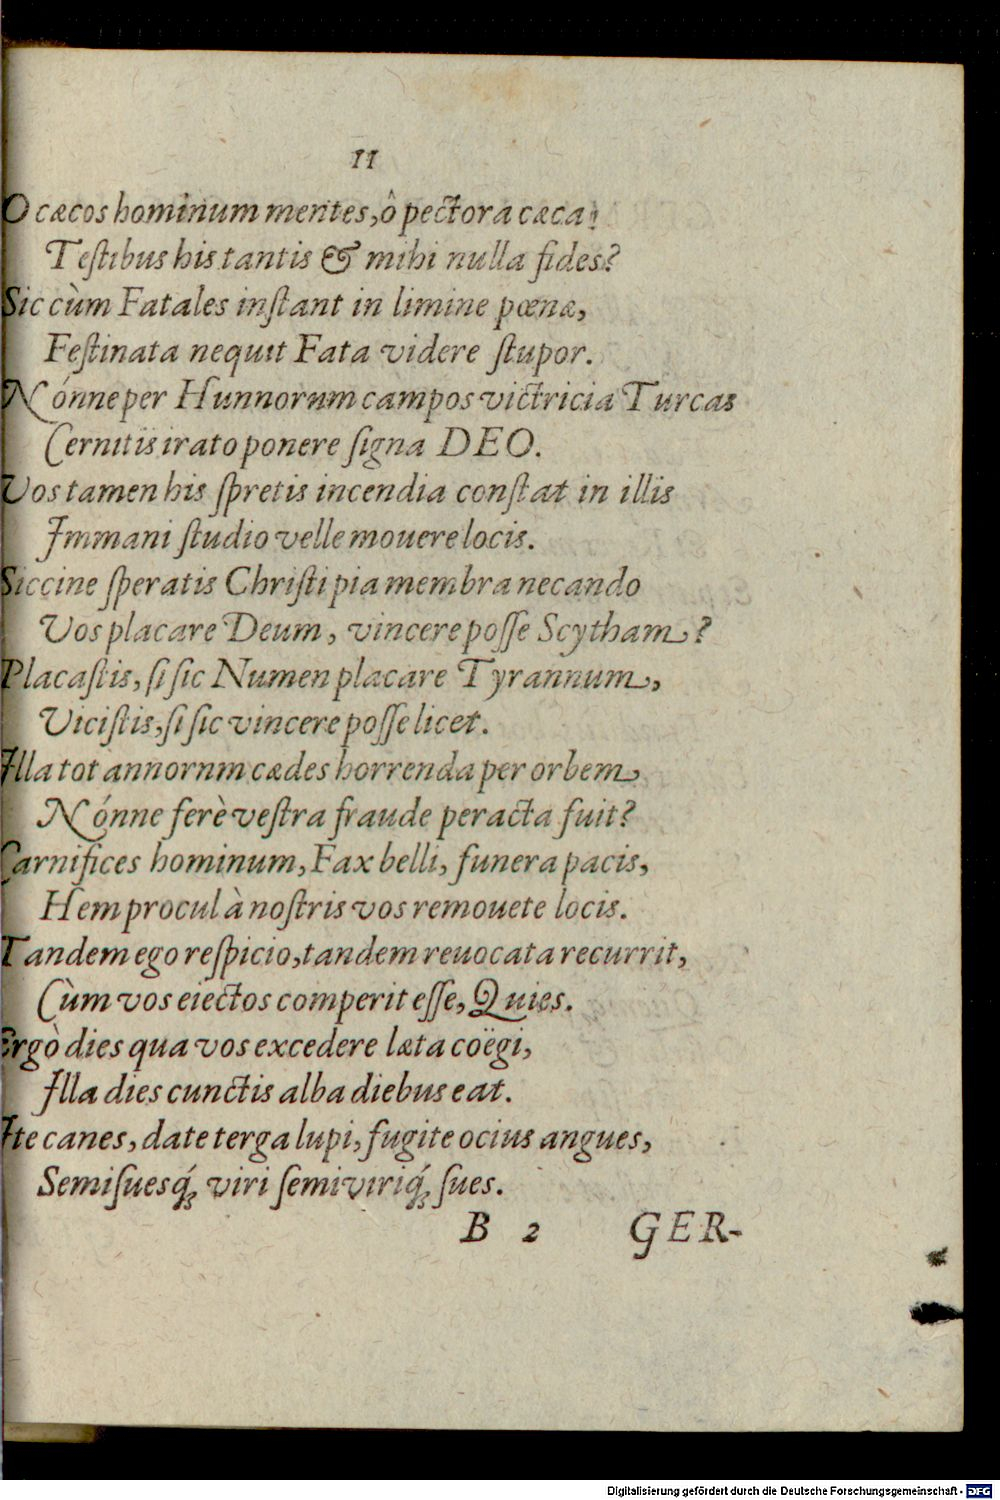 11
O cæcos hominum mentes, ô pectora cæca!
Testibus his tantis & mihi nulla fides?
Sic cùm Fatales instant in limine pœnæ,
Festinata nequit Fata videre stupor.
Nónne per Hunnorum campos victricia Turcas
Cernitis irato ponere signa DEO.
Vos tamen his spretis incendia constat in illis
Immani studio velle mouere locis.
Siccine speratis Christi pia membra necando
Vos placare Deum, vincere posse Scytham?
Placastis, si sic Numen placare Tyrannum,
Vicistis, si sic vincere posse licet.
Illa tot annornm cædes horrenda per orbem
Nónne ferè vestra fraude peracta fuit?
Carnifices hominum, Fax belli, funera pacis,
Hem procul à nostris vos remouete locis.
Tandem ego respicio, tandem reuocata recurrit,
Cùm vos eiectos comperit esse, Quies.
Ergò dies qua vos excedere læta coëgi,
Illa dies cunctis alba diebus eat.
Ite canes, date terga lupi, fugite ocius angues,
Semisuesq́; viri semiviriq́; sues.
B 2 GER-
Digitalisierung gefördert durch die Deutsche Forschungsgemeinschaft - DFG